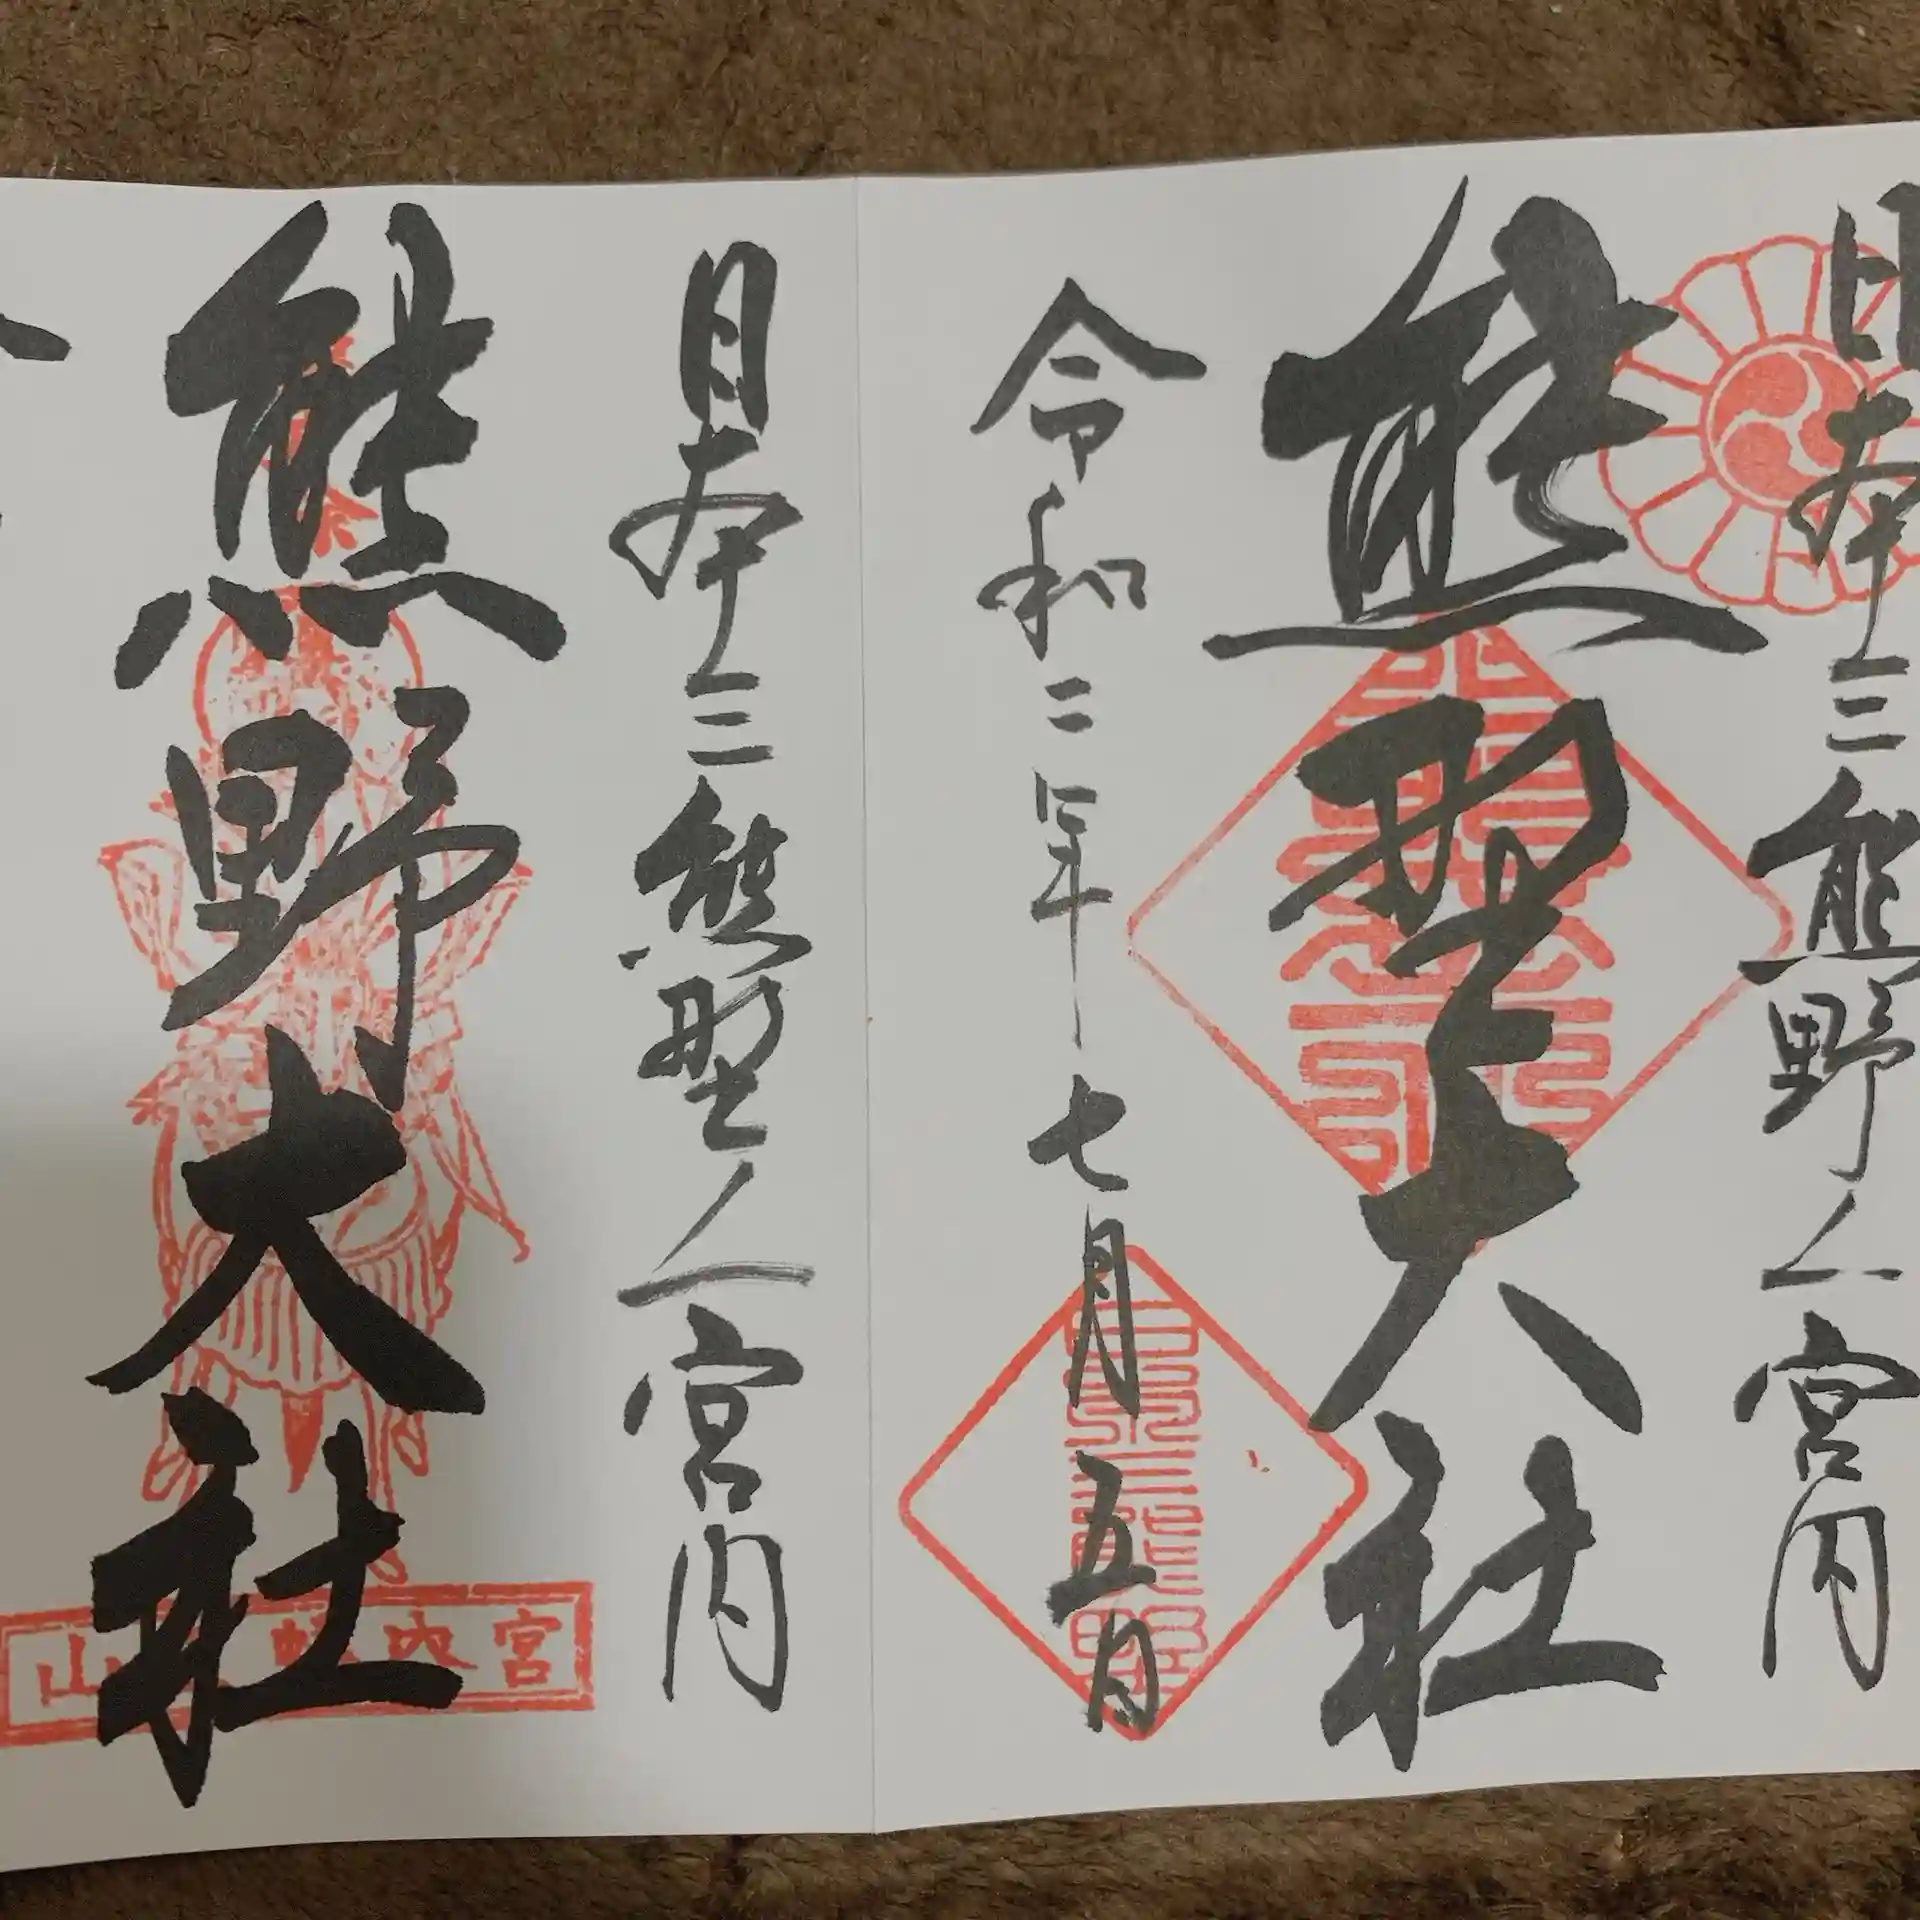 日本三熊野ノ一宮内
熊野大社
令和二年七月五日
日本三熊野ノ一宮内
熊野大社
宮内
山